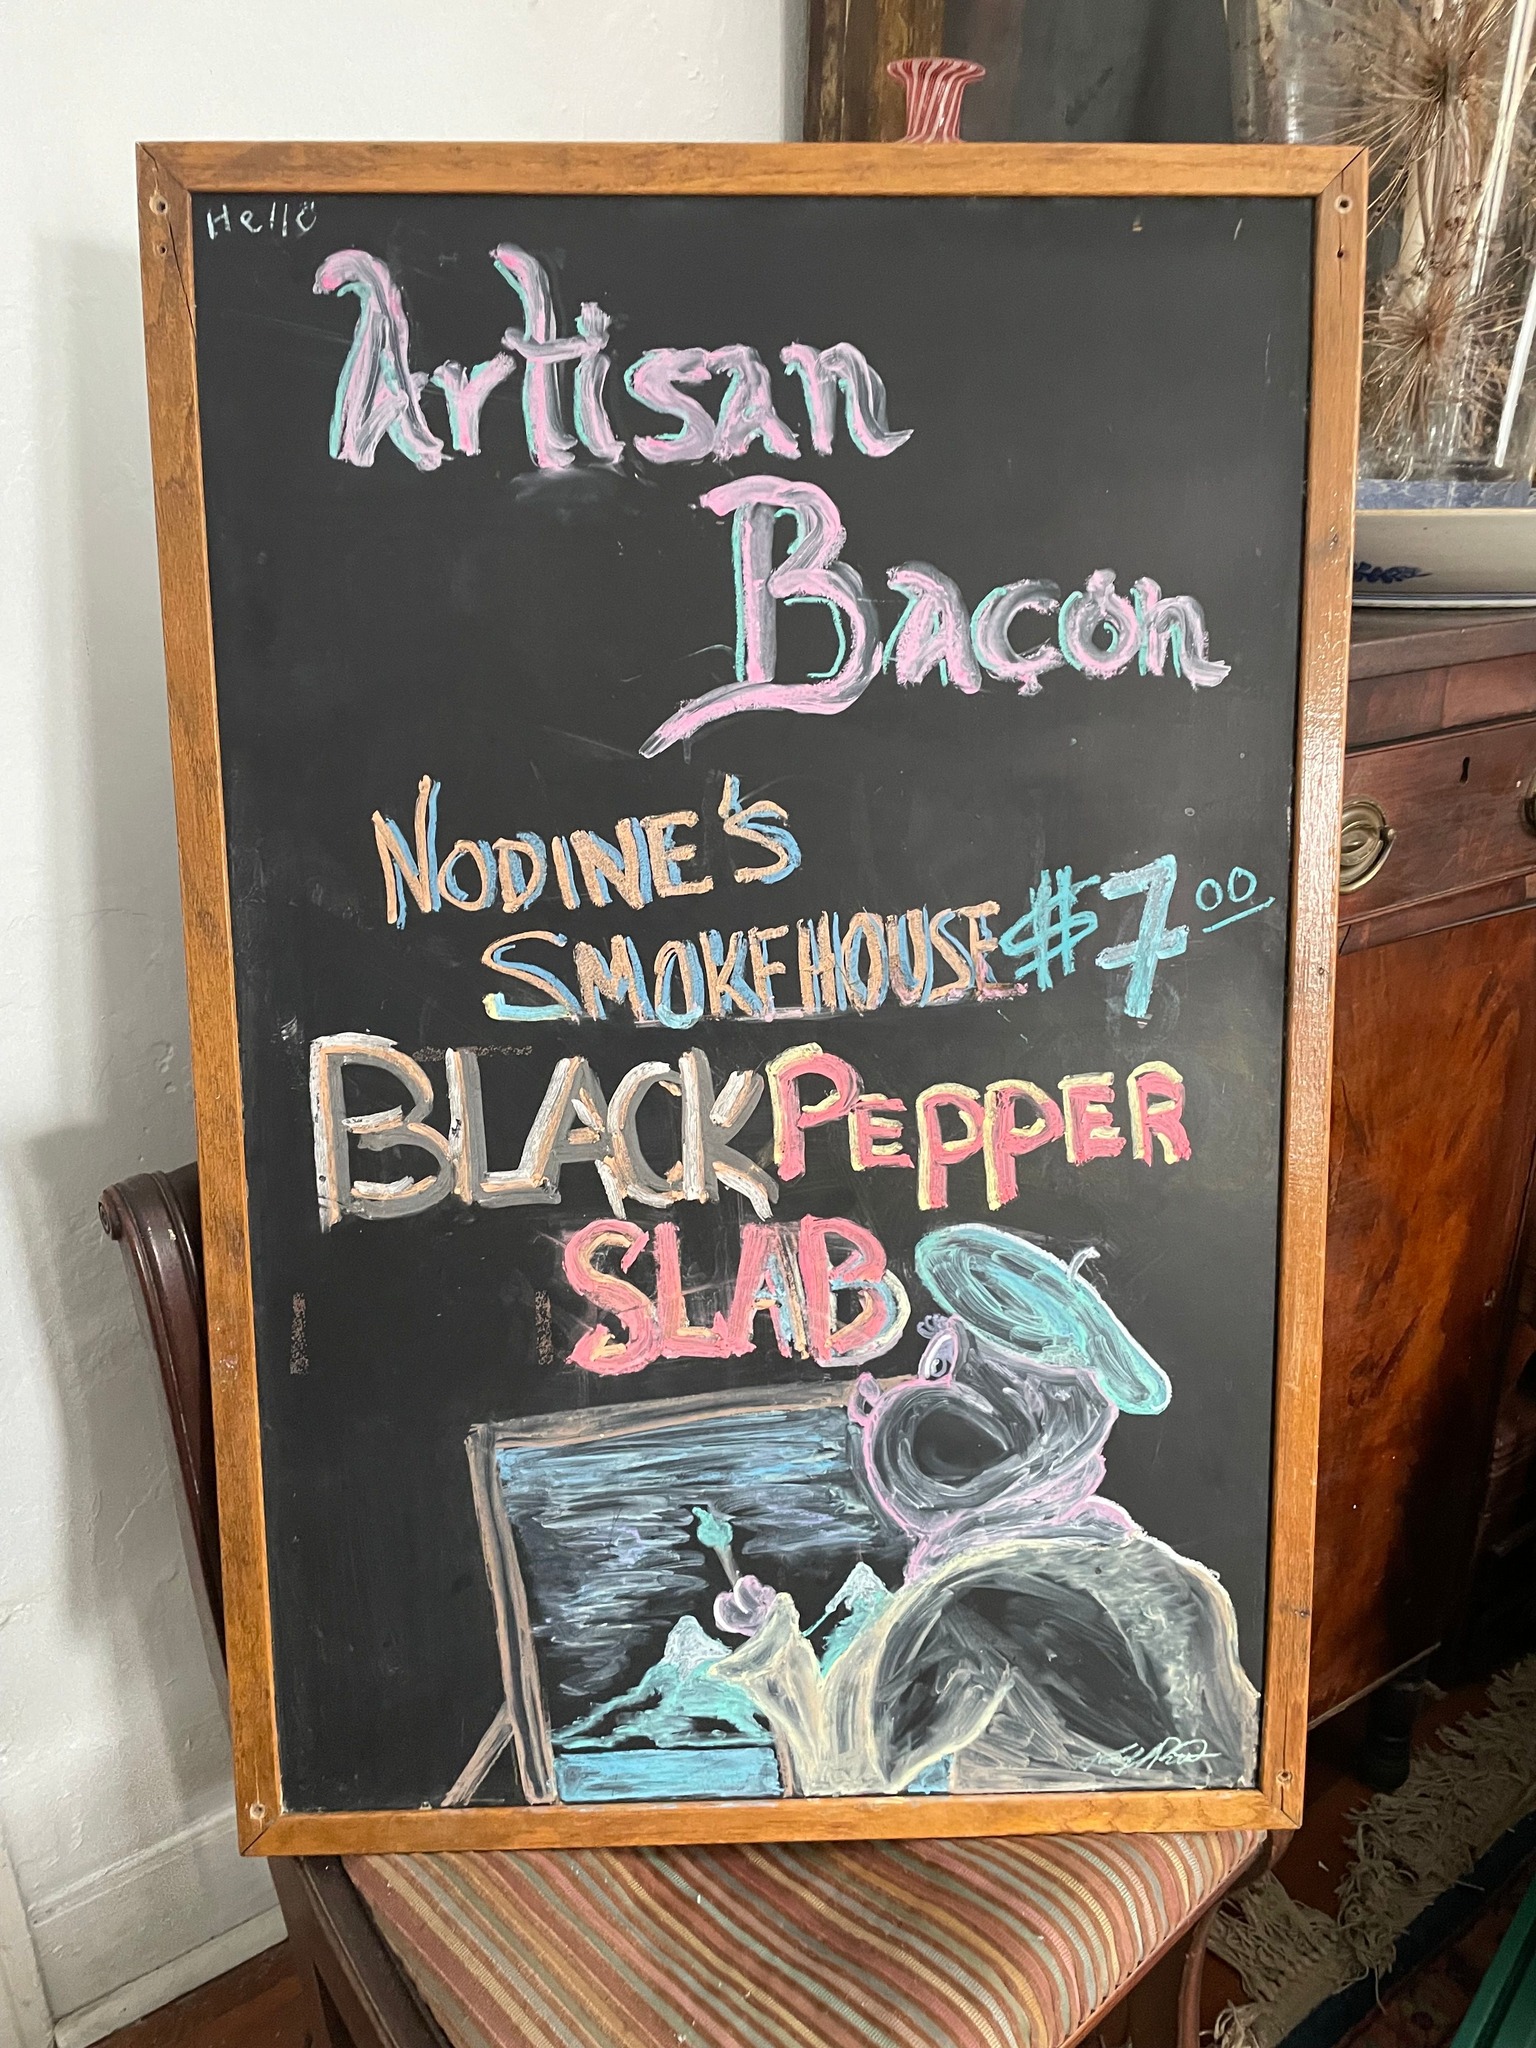 Hello
Artisan
Baçon
NODINE'S
SMOKEHOUSE $7.00
BLACK PEPPER
SLAB